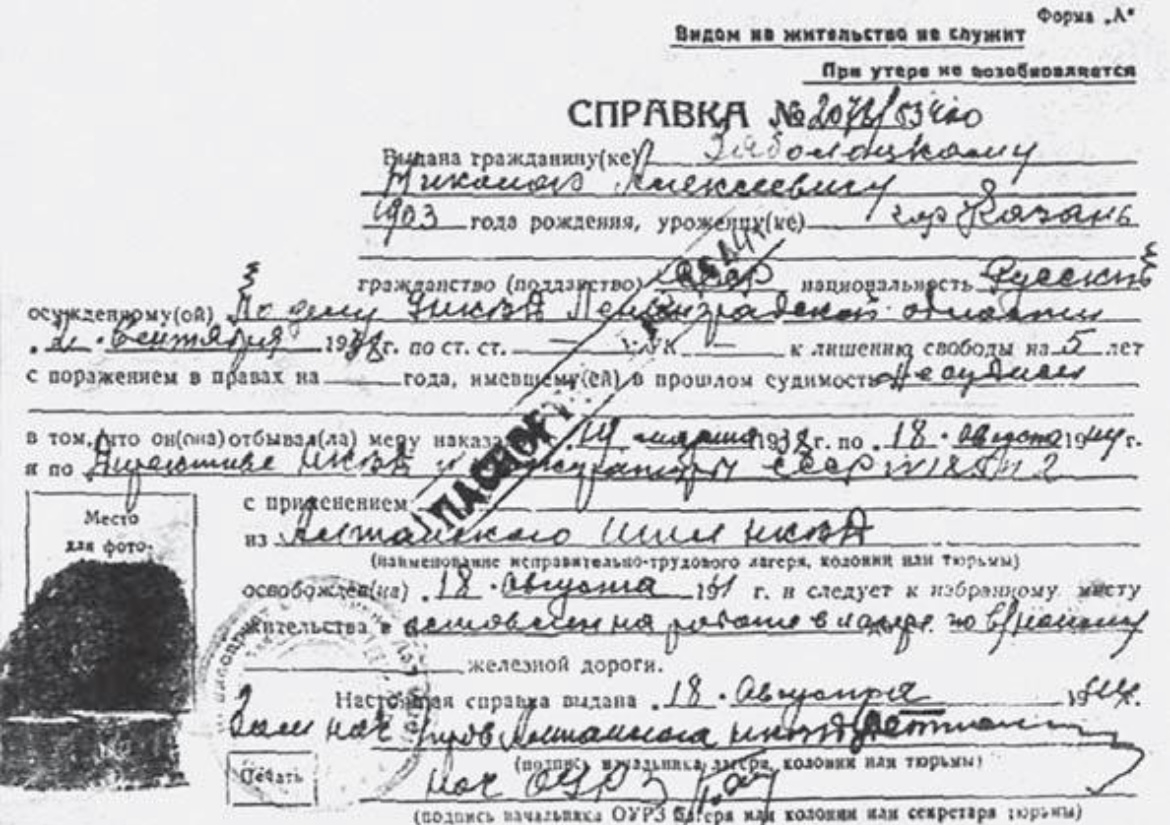 Форма „А“
Видом на жительство не служит
При утере не возобновляется
СПРАВКА №
Выдана гражданину(ке) Заболоцкому
Николаю Алексеевичу
1903 года рождения, уроженцу(ке) гор Казань
гражданство (подданство) СССР национальность Русский
осужденному(ой) По делу УНКВД Ленинградской области
„2“ Сентября 1938 г. по ст. ст. — УК — к лишению свободы на 5 лет
с поражением в правах на года, имевшему(ей) в прошлом судимость Несудим
в том, что он(она) отбывал(ла) меру наказа 19 марта 1938 г. по „18“ Августа 1944 г.
и по Директиве НКВД и Прокуратуры СССР № 185 п 2
ПАСПОРТ
с применением
из Алтайского ИТЛ НКВД
(наименование исправительно-трудового лагеря, колонии или тюрьмы)
освобожден(на) „18“ Августа 194 г. и следует к избранному месту
жительства в оставлен на работе в лагере по в/найму
железной дороги.
Место
для фото-
Настоящая справка выдана „18“ Августа 1944 г.
Зам нач Алтайлага НКВД
(подпись начальника лагеря, колонии или тюрьмы)
Печать
Нач ОУРЗ
(подпись начальника ОУРЗ лагеря или колонии или секретаря тюрьмы)